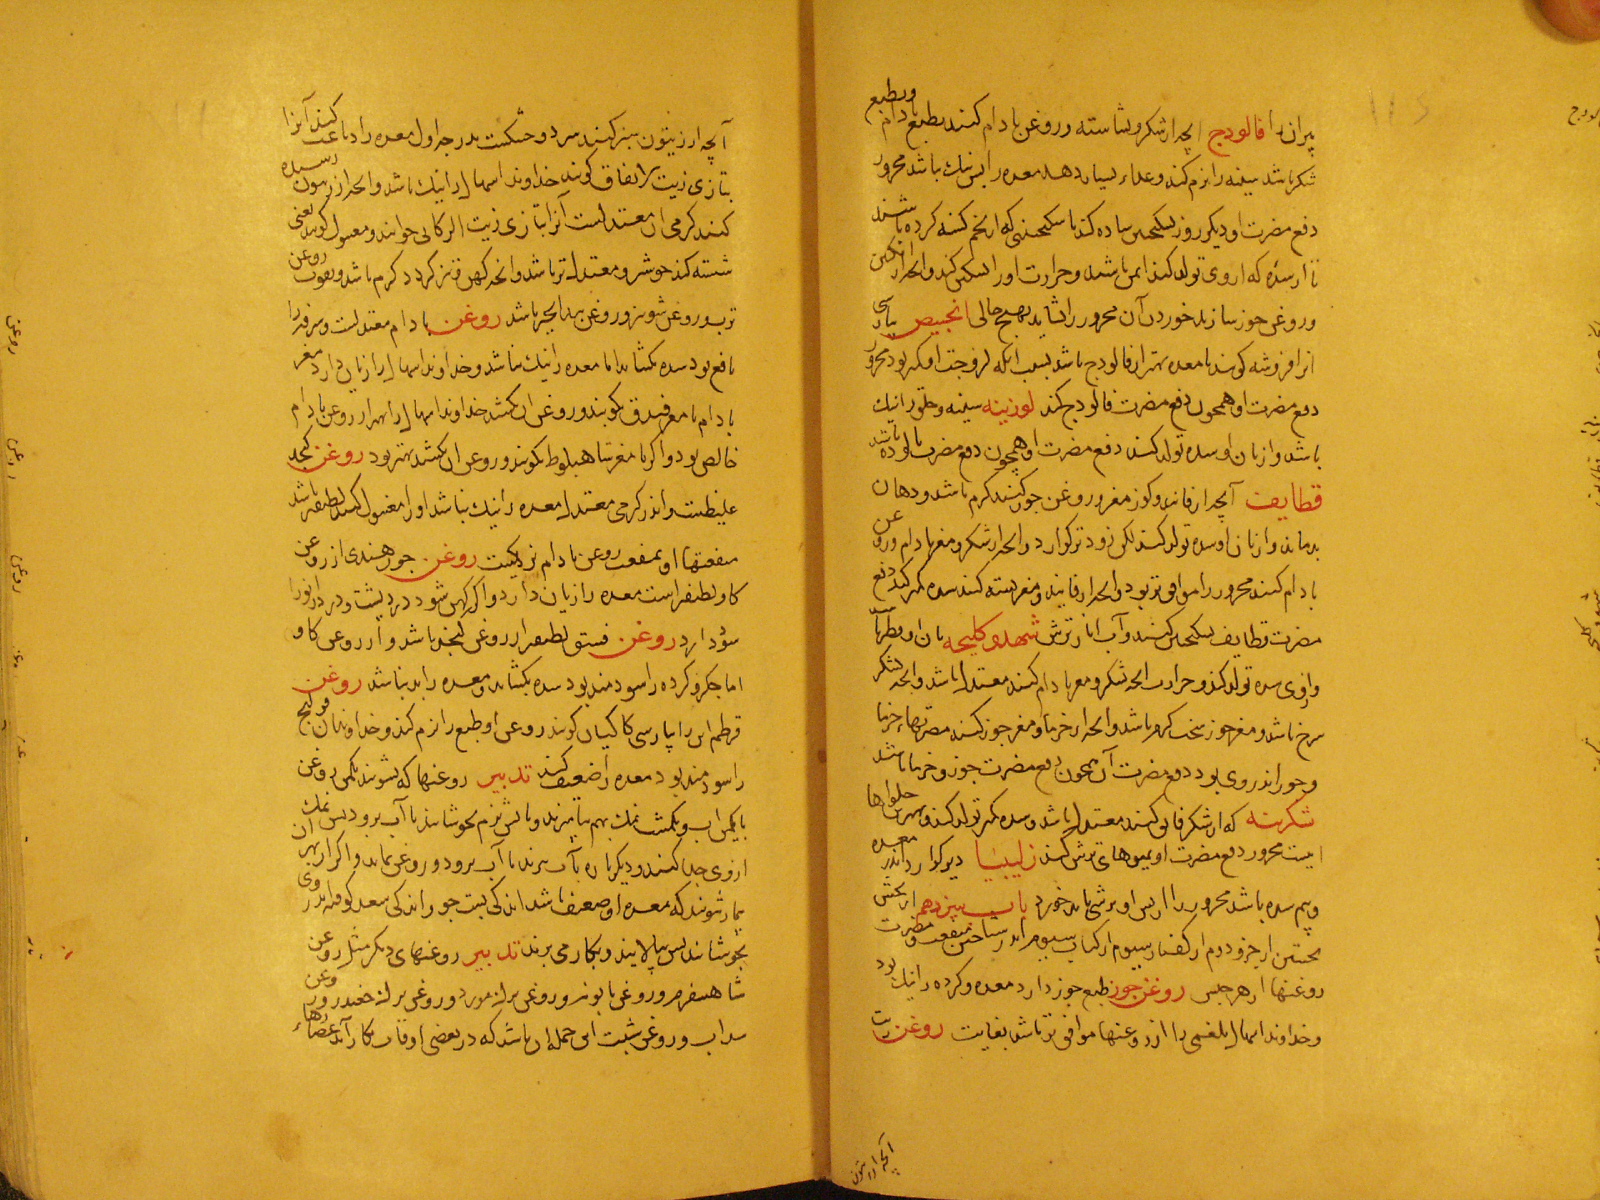 پیران را فالوذج آنچه از شکر و نشاسته و روغن بادام کنند بطبع بادام و بطبع
شکر باشد سینه را نرم کند و غذاء بسیار دهد معده را پس نیک باشد محرور
دفع مضرت او دیگر روز بسکنجبین ساده کند یا سکنجبینی که از تخم کسنه کرده باشند
تا از سده که از وی تولد کند ایمن باشد و حرارت او را تسکین کند و آنچه از انگبین
و روغن جوز سازند خوردن آن محرور را نشاید بهیچ حالی الخبیص بپارسی
آنرا فروشه گویند با معده بهتر از فالوذج باشد بسبب آنکه لزوجت او کمتر بود محرور
دفع مضرت او همچون دفع مضرت فالوذج کند لوزینه سینه و حلق را نیک
باشد و از نان او سده تولد کند دفع مضرت او همچون دفع مضرت پالوده باشد
قطایف آنچه از فانید و کوز مغز و روغن جوز کنند گرم باشد و دهان
بدماند و از نان او سده تولد کند لکن زودتر گوارد و آنچه از شکر و مغز بادام و روغن
بادام کنند محرور را موافق‌تر بود و آنچه از فانید و مغز پسته کنند سده کمتر کند دفع
مضرت قطایف بسکنجبین کنند و آب انار ترش شهد و کلیچه نان او فطیر باشد
و از وی سده تولد کند و حرارت آنچه شکر و مغز بادام کنند معتدل باشد و آنچه بشکر
سرخ باشد و مغز جوز سخت گرم باشد و آنچه از خرما و مغز جوز کنند مضرتهاء خرما
و جوز اندر وی بود دفع مضرت آن همچون دفع مضرت جوز و خرما باشد
شکرینه که از شکر فایق کنند معتدل باشد و سده کمتر تولد کند و بهترین حلواها
است محرور دفع مضرت او بمیوهای ترش کند زلیبیا دیر گوارد و اندر معده
و بیم سده باشد محرور را از پس او ترشی باید خورد باب سیزدهم از بخش
نخستین از جزو دوم از گفتار سیوم از کتاب سیوم اندر شناختن منفعت و مضرت
روغنها از هر جنس روغن جوز طبع جوز دارد معده و گرده را نیک بود
و خداوند اسهال بلغمی را از روغنها موافق تر باشد بغایت روغن زیت
آنچه از زیتون
آنچه از زیتون سبز کنند سرد و خشکست بدرجه اول معده را دباغت کند آنرا
بتازی زیت الانفاق گویند خداوند اسهال را نیک باشد و آنچه از زیتون رسیده
کنند گرمی آن معتدلست آنرا بتازی زیت الرکابی خوانند و مغسول گویند یعنی
شسته کند خوشتر و معتدل تر باشد و آنچه کهن تر گردد گرم باشد و بقوت روغن
ترب و روغن شونیز و روغن بیدانجیر باشد روغن بادام معتدلست و سرفه را
نافع بود سده بگشاید اما معده را نیک نباشد و خداوند اسهال را زیان دارد مغز
بادام با مغز فندق بکوبند و روغن آن بکشند خداوند اسهال را بهتر از روغن بادام
خالص بود و اگر با مغز شاهبلوط بکوبند و روغن آن بکشند بهتر بود روغن کنجد
غلیظست و اندر گرمی معتدل معده را نیک نباشد او را مغسول کنند لطیفتر باشد
منفعتها او بمنفعت روغن بادام نزدیکست روغن جوز هندی از روغن
گاو لطیفتر است معده را زیان دارد و اگر کهن شود درد پشت و درد زانو را
سود دارد روغن فستق لطیفتر از روغن کنجد باشد و از روغن گاو
اما جگر و گرده را سودمند بود سده بگشاید و معده را بد نباشد روغن
قرطم این را بپارسی کاکیان گویند روغن او طبع را نرم کند و خداوندان قولنج
را سودمند بود معده را ضعیف کند تدبیر روغنها که بشویند یکمن روغن
با یکمن آب و یکمشت نمک بهم بیامیزند و بآتش نرم بجوشانند تا آب برود پس نمک
از وی جدا کنند و دیگر باره بآب ببرند تا آب برود و روغن بماند و اگر از بهر آن
بیمار شویند که معده او ضعیف باشد اندکی شبت جو و اندکی سعد کوفته اندر وی
بجوشانند پس بپالایند و بکار می برند تدبیر روغنهای دیگر مثل روغن
شاهسفرم و روغن بابونه و روغن برگ مورد و روغن برگ چغندر و روغن
سداب و روغن شبت این جمله آن باشد که در بعضی اوقات بکار آید عصارهاء